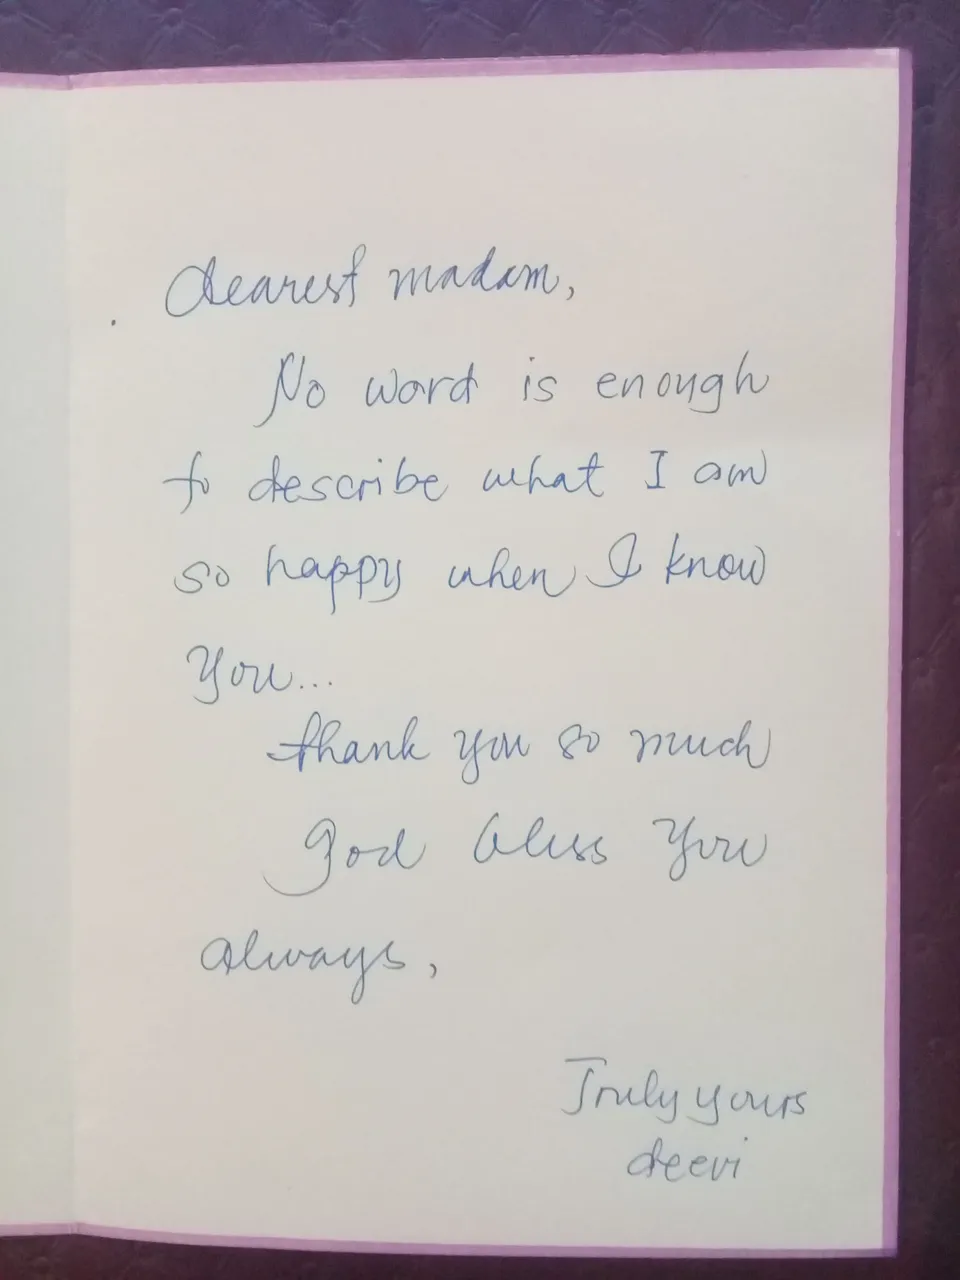 dearest madam,
No word is enough
to describe what I am
so happy when I know
You...
thank you so much
God bless You
always,
Truly yours
deevi